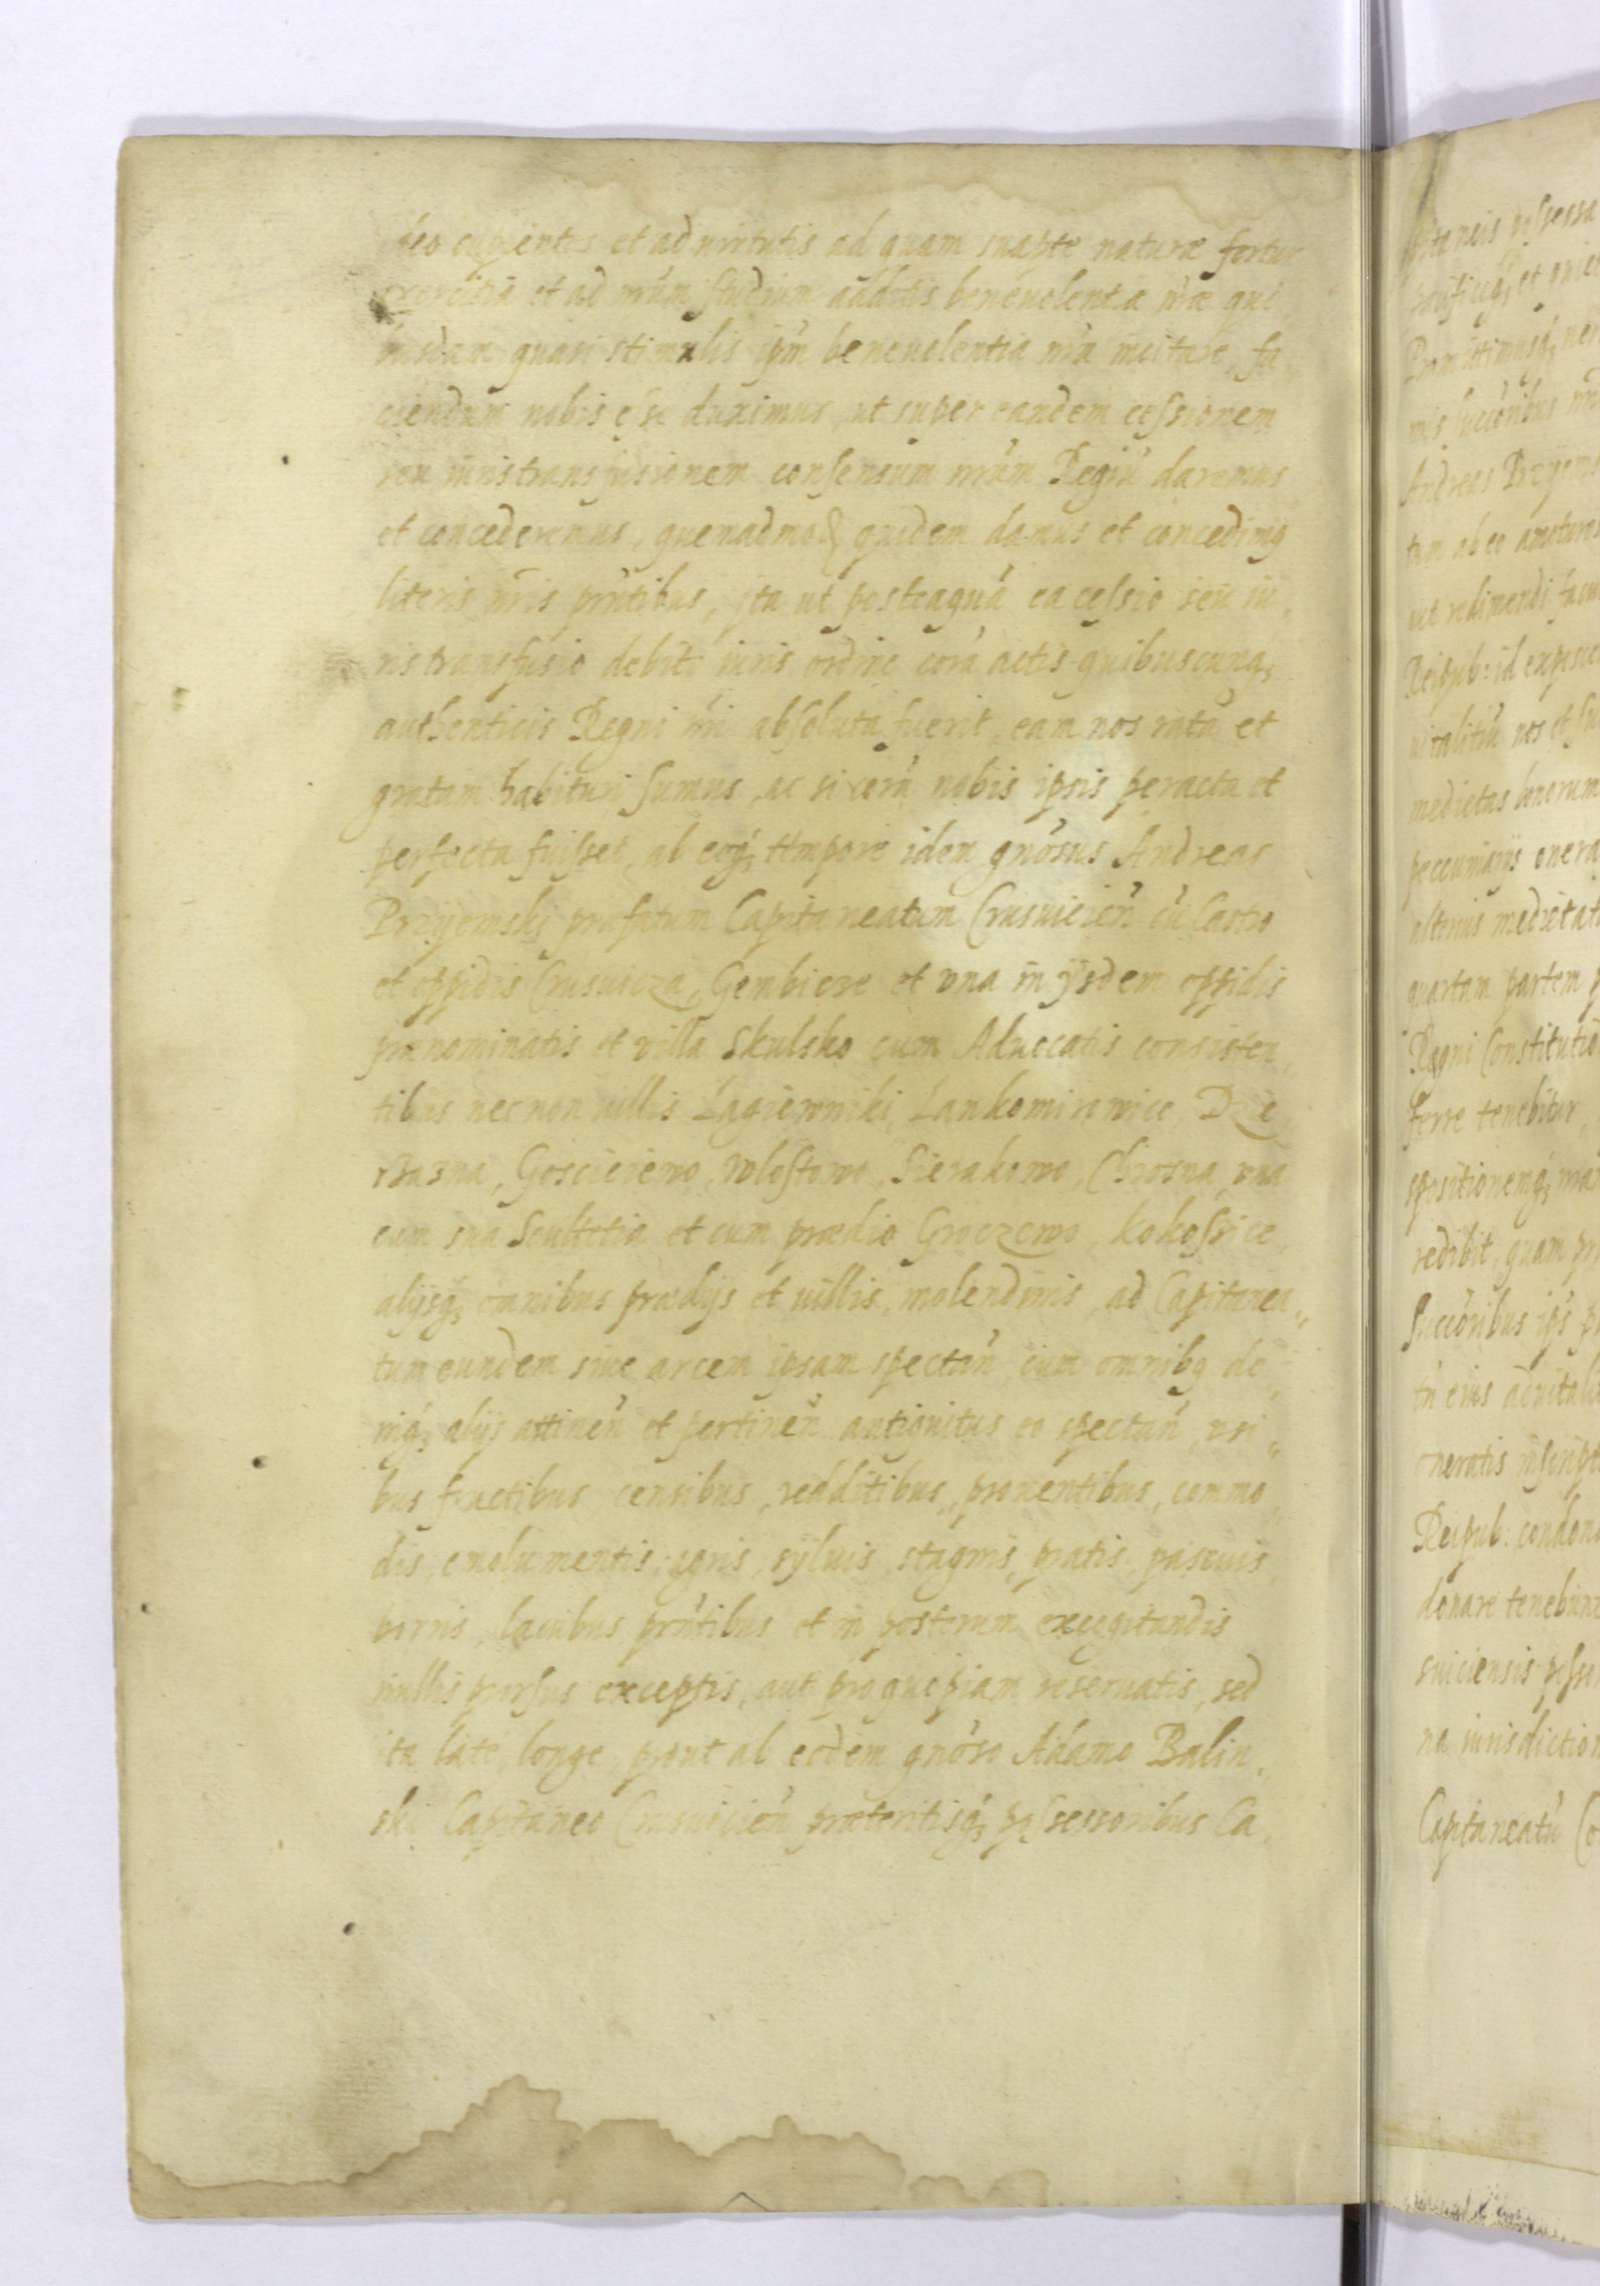 cupientes et ad virtutis ad quam suapte natura fertur
et ad nr̃um studium additis beneuolentiæ nr̃æ qui
busdam quasi stimulis ip̃m beneuolentia nr̃a incitare, fa
ciendum nobis esse duximus, ut super eandem cessionem
seu iuris transfusionem consensum nr̃um Regiũ daremus
et concederemus, quidem damus et concedimꝯ
literis nr̃is pñtibus, ita ut posteaquã ea cessio seu iu,
ris transfusio debito iuris ordine corã actis quibuscunq,
authenticis Regni nr̃i absoluta fuerit, eam nos ratã et
gratam habituri sumus, ac si corã nobis ipsis peracta et
perfecta fuisset, ab eoq, tempore idem gñosus Andreas
Przÿemskj præfatum Capitaneatum Crusuicień cũ Castro
et oppidis Crusuicza, Gembicze et una in ÿsdem oppidis
prænominatis et villa Skulsko cum Aduocatis consisten,
tibus necnon uillis Łagiewniki, Lankomirowice,
Wlostowo, Sierakowo, Chrosna, vna
cum sua Scultetia et cum prædio kokoszice,
alijsq, omnibus prædijs et uillis, molendinis, ad Capitanea,,
tum eundem siue arcem ipsam spectań cum omnibꝯ de,
niq, alijs attineñ et pertineñ antiquitus eo spectań, vsi,,
bus fructibus censibus, redditibus, prouentibus, commo,
dis, emolumentis, agris, sÿluis, stagnis, pratis, pascuis,
lacubus pñtibus et in posterum excogitandis
nullis prorsus exceptis, aut pro quepiam reseruatis, sed
ita late, longe, prout ab eodem gñoso Adamo Balin,
ski Capitaneo Crusuicień præteritisq, possessoribus Ca,
possessa
et quiet
Promittimusq,
succõribus
Andreas Przÿems
tum ab eo amoturos
aut redimendi
Reipub: id
nos et
medietas bonorum
onera
alterius medietat
quartam partem
Regni Constitutio
ferre tenebitur,
redibit, quam
Succõribus
oneratis
Reipub: condona
donare tenebunt
suiciensis
iurisdiction
Capitaneatũ